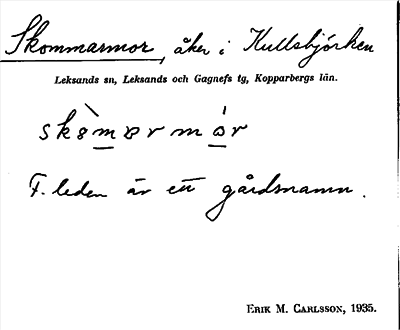 Skommarmor, åker i Kullsbjörken
Leksands sn, Leksands och Gagnefs tg, Kopparbergs län.
F. leden är ett gårdsnamn.
ERIK M. CARLSSON, 1935.